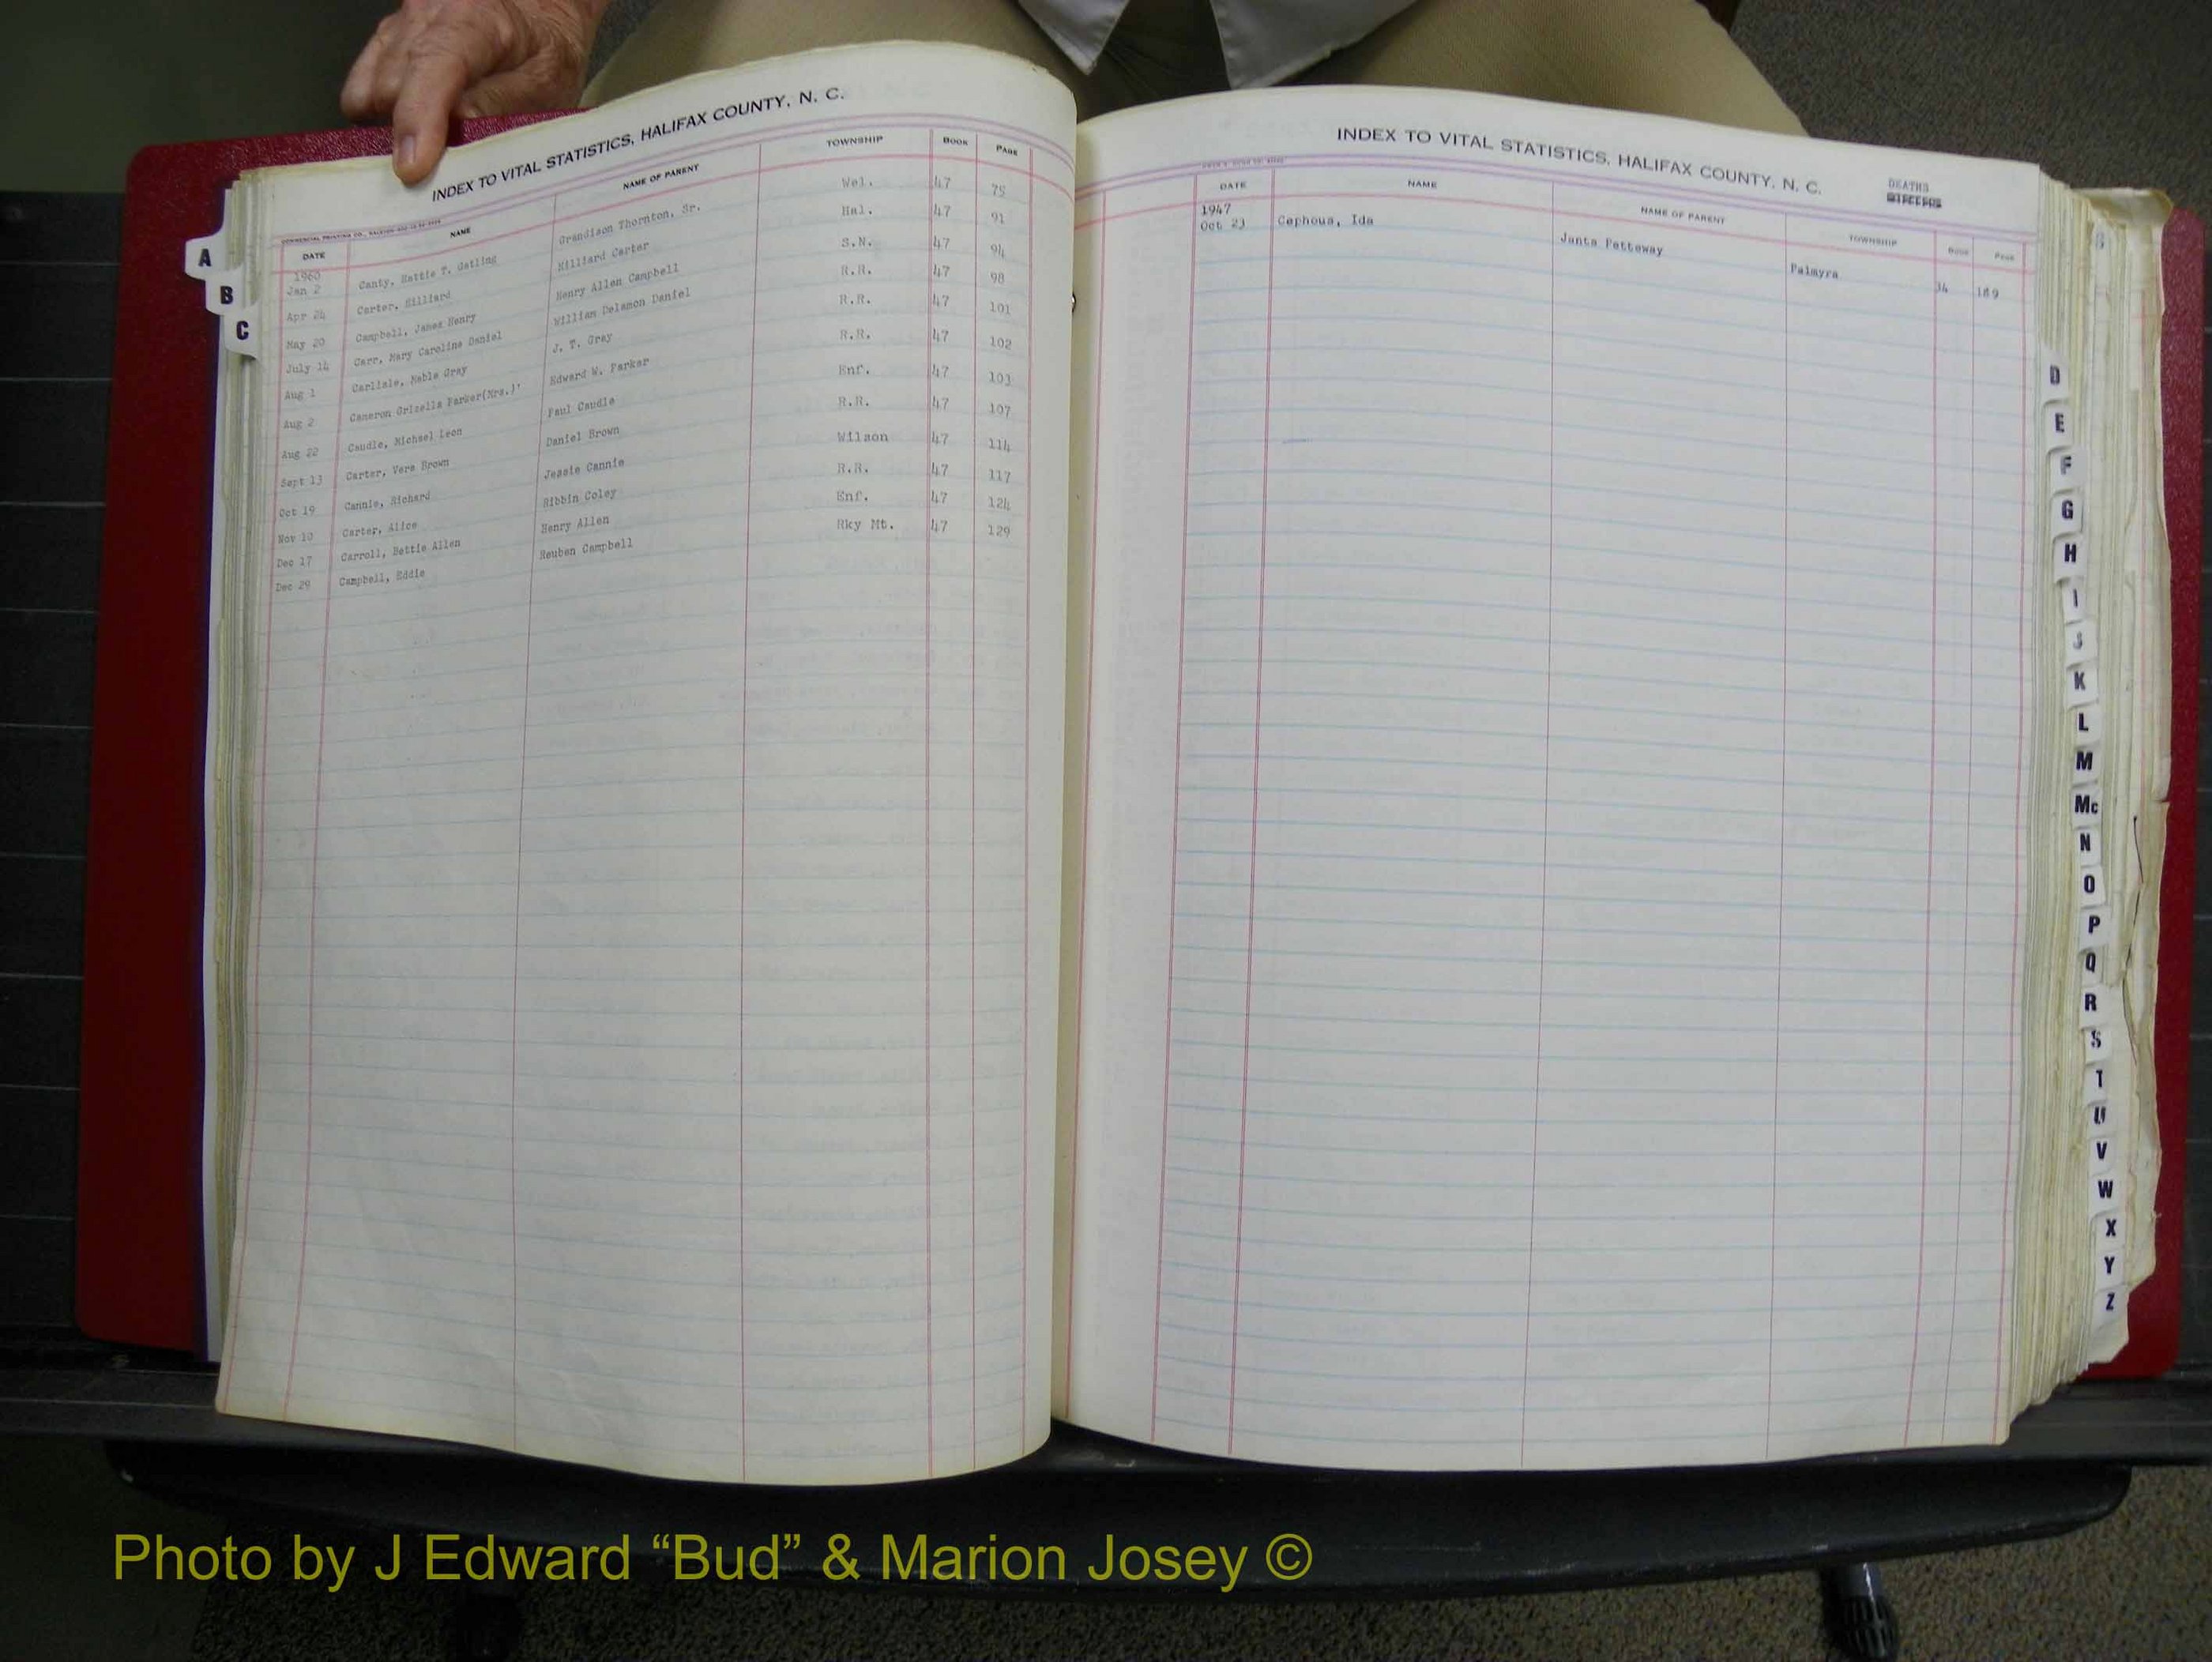 INDEX TO VITAL STATISTICS, HALIFAX COUNTY, N. C.
DATE NAME NAME OF PARENT TOWNSHIP BOOK PAGE
1960
Jan 2 Canty, Hattie T. Gatling Grandison Thornton, Sr. Wel. 47 75
Apr 24 Carter, Hilliard Hilliard Carter Hal. 47 91
May 20 Campbell, James Henry Henry Allen Campbell S.N. 47 94
July 14 Carr, Mary Caroline Daniel William Delamon Daniel R.R. 47 98
Aug 1 Carlisle, Mable Gray J. T. Gray R.R. 47 101
Aug 2 Cameron Grizella Parker(Mrs.)' Edward W. Parker R.R. 47 102
Aug 22 Caudle, Michael Leon Paul Caudle Enf. 47 103
Sept 13 Carter, Vera Brown Daniel Brown R.R. 47 107
Oct 19 Cannie, Richard Jessie Cannie Wilson 47 114
Nov 10 Carter, Alice Ribbin Coley R.R. 47 117
Dec 17 Carroll, Bettie Allen Henry Allen Enf. 47 124
Dec 29 Campbell, Eddie Reuben Campbell Rky Mt. 47 129
A
B
C
INDEX TO VITAL STATISTICS, HALIFAX COUNTY, N. C.
DEATHS
DATE NAME NAME OF PARENT TOWNSHIP BOOK PAGE
1947
Oct 23 Cephous, Ida Junta Petteway Palmyra 34 189
D
E
F
G
H
I
J
K
L
M
Mc
N
O
P
Q
R
S
T
U
V
W
X
Y
Z
Photo by J Edward “Bud” & Marion Josey ©